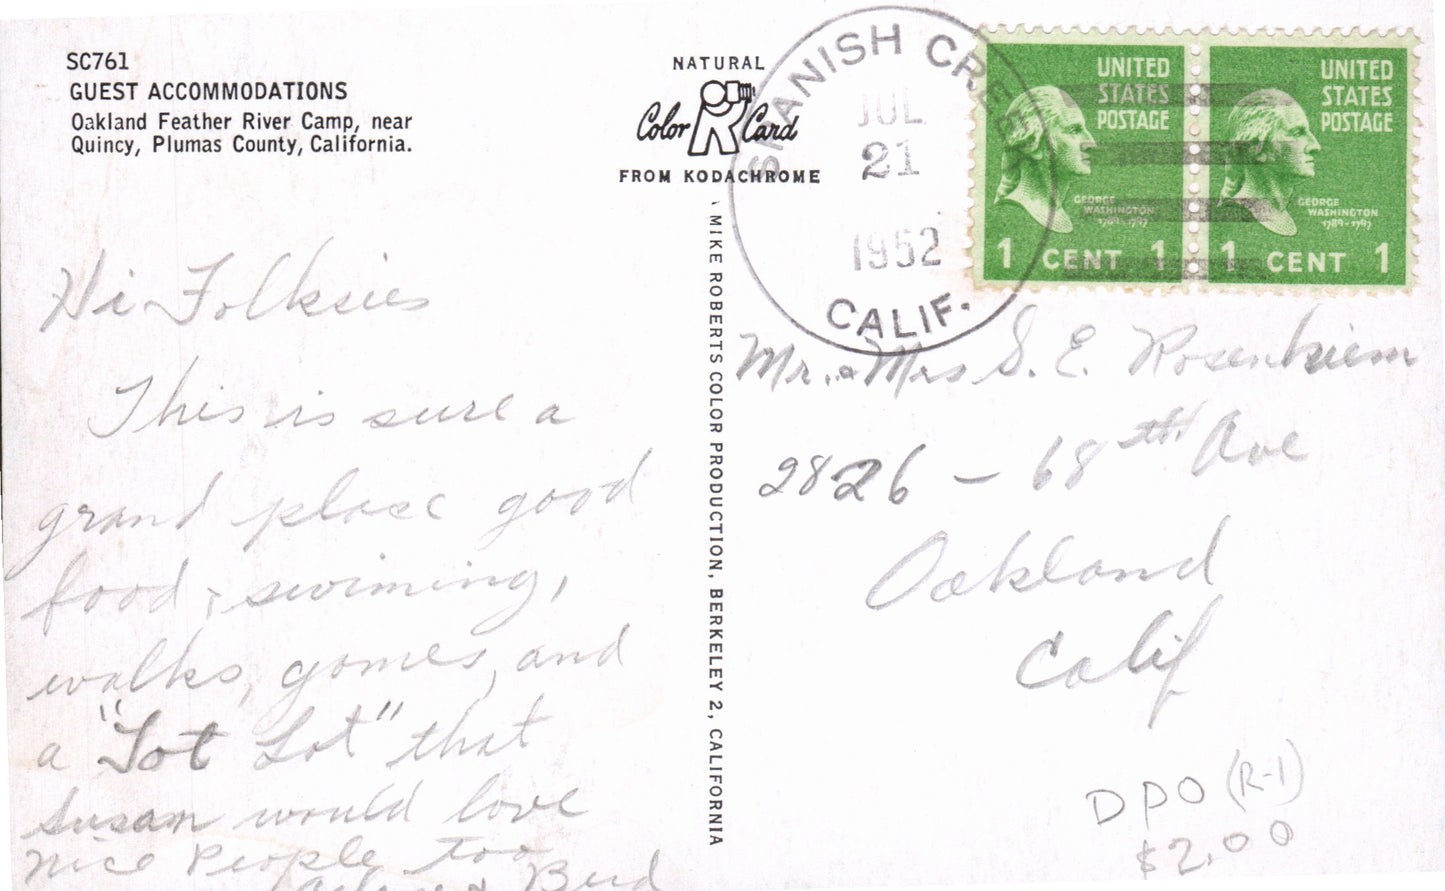 SC761
GUEST ACCOMMODATIONS
Oakland Feather River Camp, near
Quincy, Plumas County, California.
NATURAL
Color Card
FROM KODACHROME
MIKE ROBERTS COLOR PRODUCTION, BERKELEY 2, CALIFORNIA
SPANISH CREEK
JUL
21
1952
CALIF.
UNITED
STATES
POSTAGE
GEORGE
WASHINGTON
1789-1797
1 CENT 1
UNITED
STATES
POSTAGE
GEORGE
WASHINGTON
1789-1797
1 CENT 1
Hi Folksies
This is sure a
grand place good
food, swiming,
walks, games, and
a "Tot Lot" that
Susan would love
Nice People too
& Bud
Mr. & Mrs S. E.
2826 - 68th Ave
Oakland
Calif
DPO (R-1)
$2.00